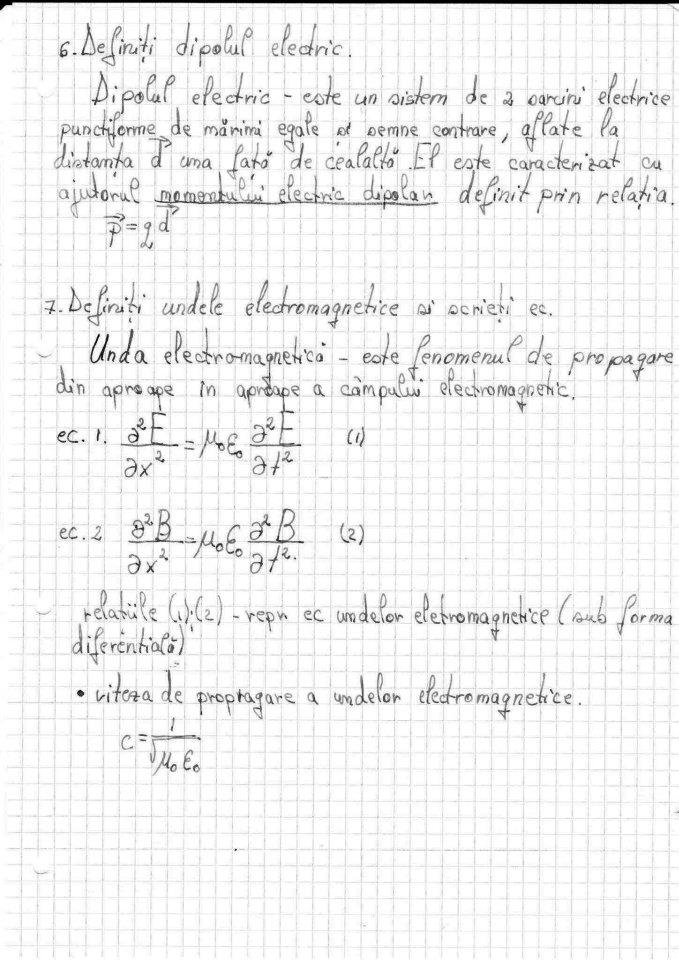 6. Definiți dipolul electric.
Dipolul electric - este un sistem de 2 sarcini electrice
punctiforme de mărimi egale și semne contrare, aflate la
distanța d⃗ una față de cealaltă. El este caracterizat cu
ajutorul momentului electric dipolar definit prin relația.
p⃗ = q d⃗
7. Definiți undele electromagnetice si scrieți ec.
Unda electromagnetică - este fenomenul de propagare
din aproape in aproape a câmpului electromagnetic.
ec. 1. ∂²E/∂x² = μ₀ε₀ ∂²E/∂t² (1)
ec. 2 ∂²B/∂x² = μ₀ε₀ ∂²B/∂t² (2)
relatiile (1); (2) - repr ec undelor eletromagnetice (sub forma
diferentială)
• viteza de propragare a undelor electromagnetice.
c = 1/√μ₀ε₀